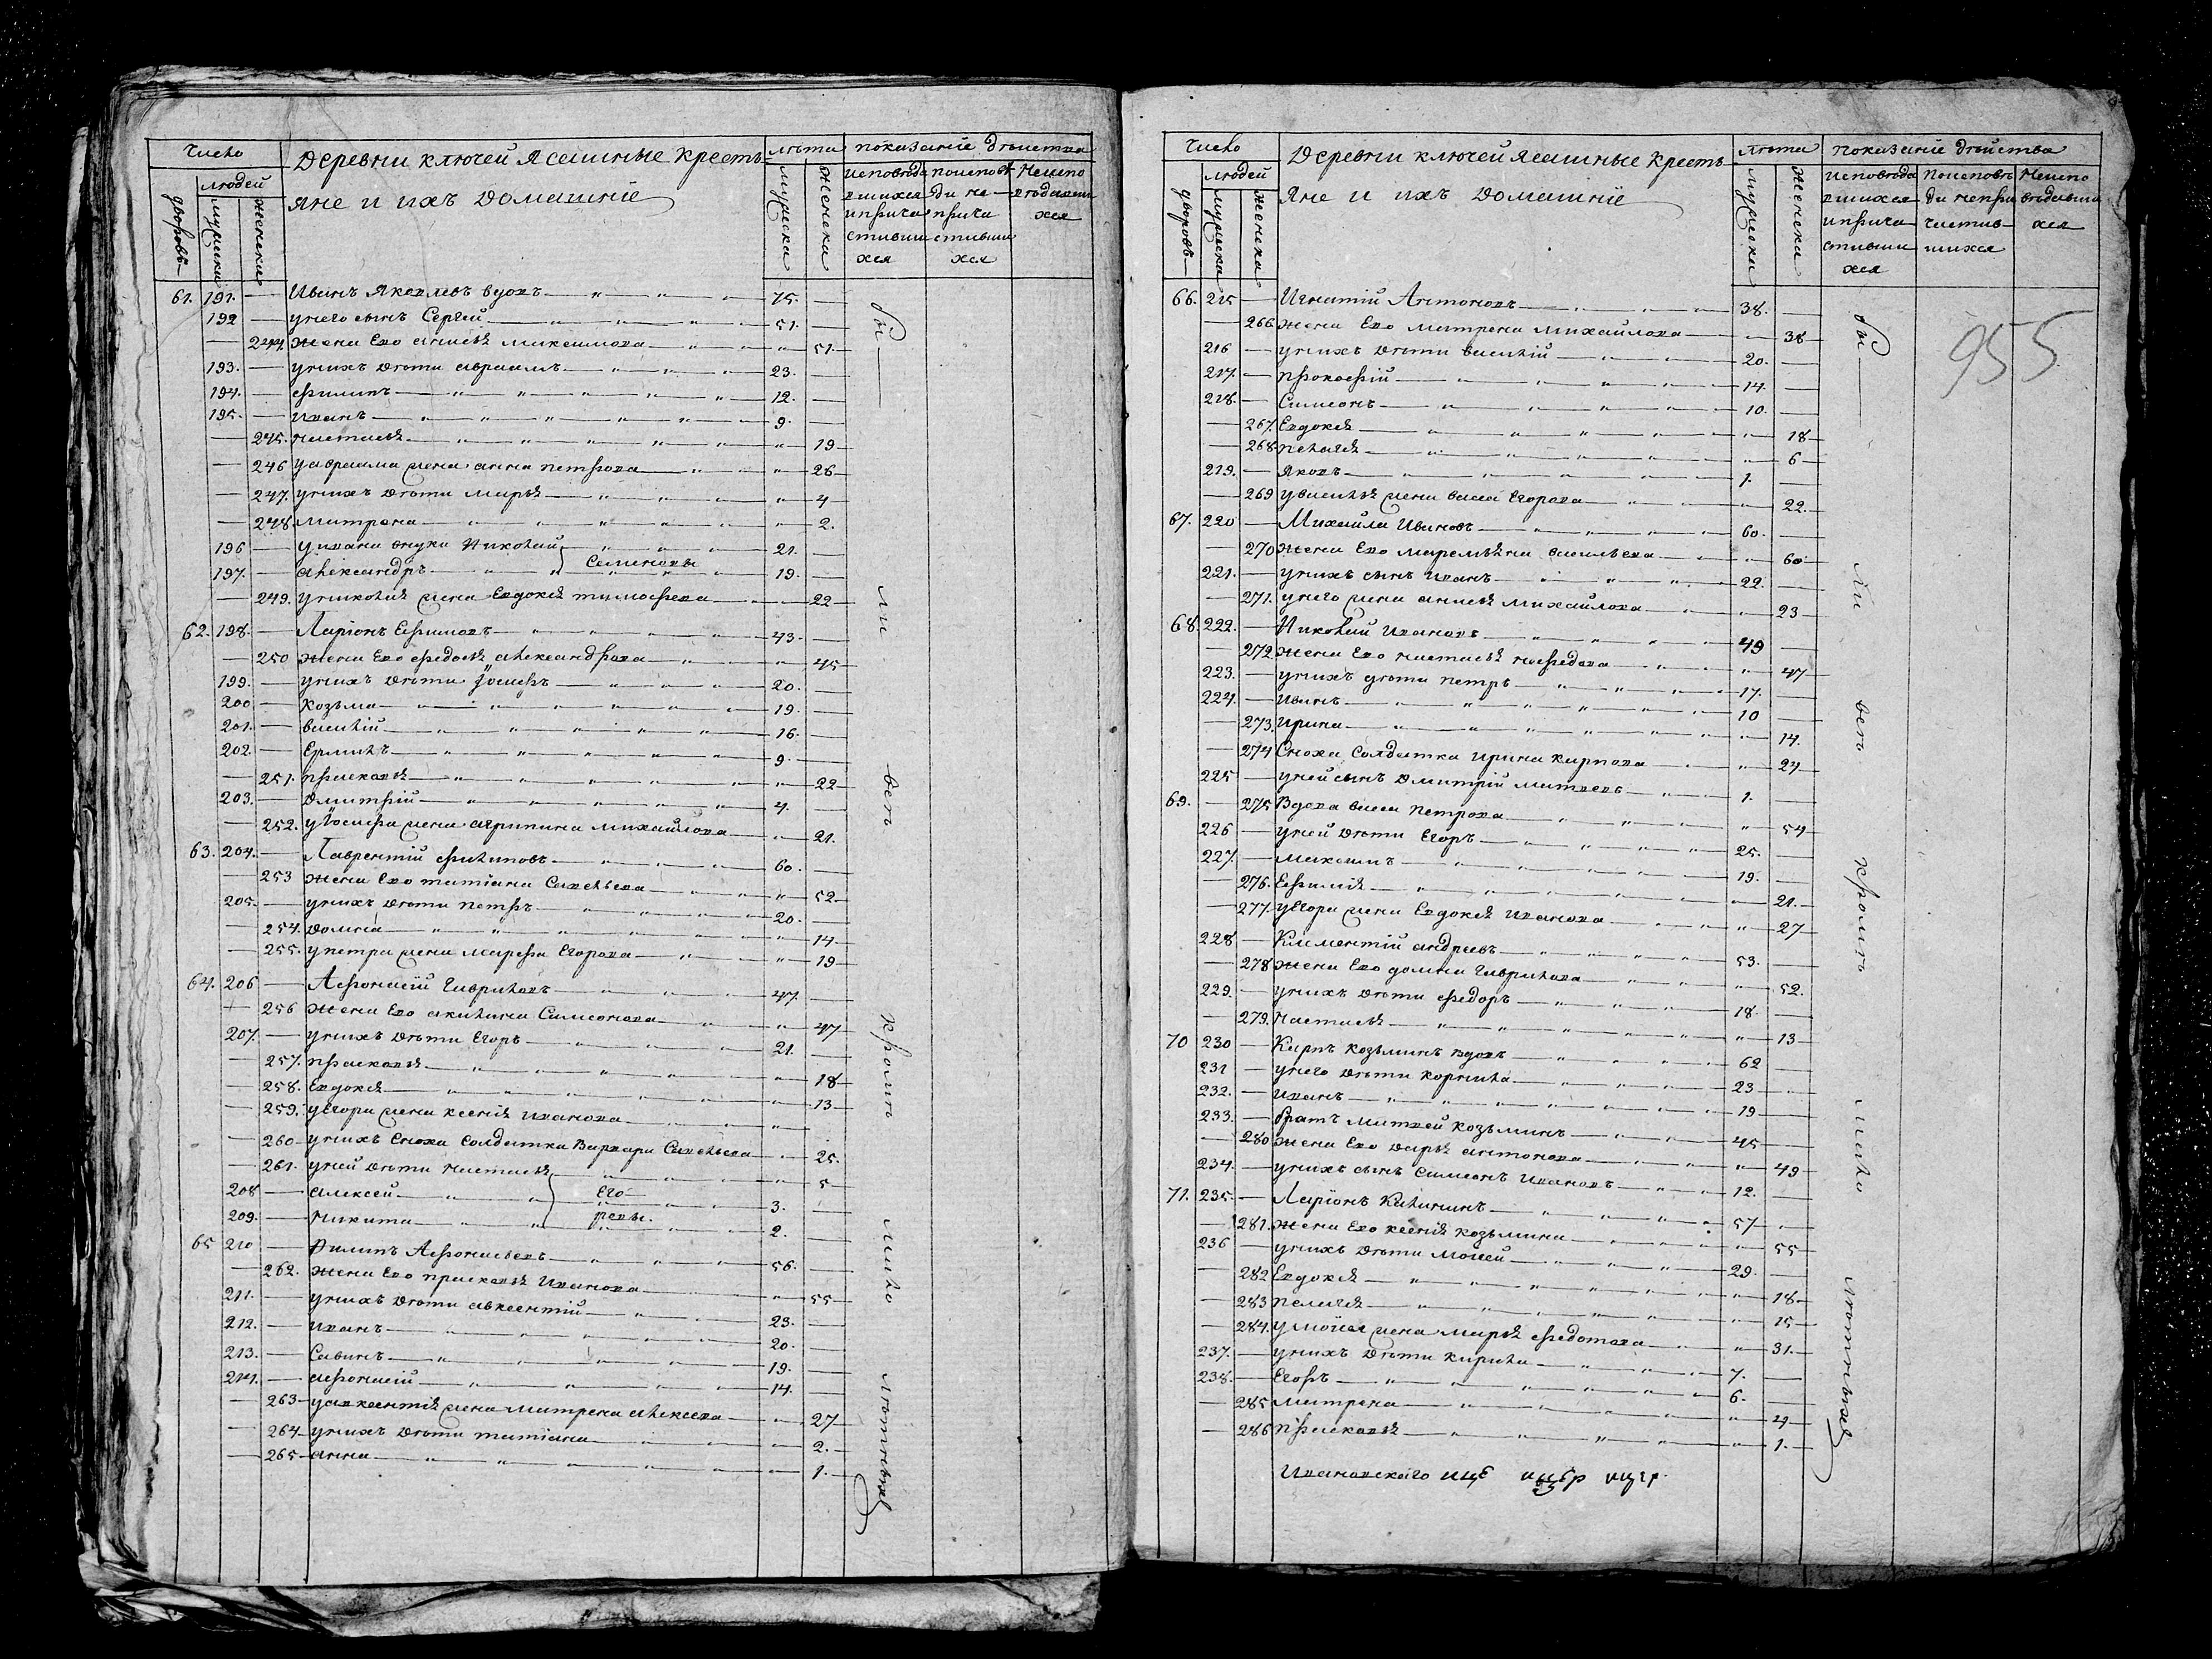 Число
Деревни ключей ясашные крестъ-
яне и ихъ домашніе
лѣта
показаніе дѣйства
людей
дворовъ
мужеска
женска
мужеска
женска
исповѣда
вшихся
и прича
стивши
хся
поисповѣ
ди не
прича
стивши
хся
неиспо
вѣдавши
хся
61. 191. — Иванъ Яковлевъ вдовъ — 75. —
192 — у него сынъ Сергей — 51. —
— 244. жена Ево анисья максимова — 51. —
193. — у нихъ дѣти авраамъ — 23. —
194. — филипъ — 12. —
195. — иванъ — 9. —
— 245. настасья — 19 —
— 246 у авраама жена анна петрова — 26 —
— 247. у нихъ дѣти марья — 4 —
— 248. матрена — 2. —
196 — у ивана внуки Николай — 21. —
197. — александръ — Семеновы 19. —
— 249. у николая жена Евдокея тимофеева — 22 —
62. 198. — Ларіонъ Ефимовъ — 43. —
— 250 жена Ево федосья александрова — 45 —
199. — у нихъ дѣти Іосифъ — 20. —
200 — козьма — 19. —
201. — василій — 16. —
202. — Ермилъ — 9. —
— 251. прасковья — 22 —
203. — дмитрій — 4. —
— 252. у Іосифа жена агрипина михайлова — 21. —
63. 204. — Лаврентій филиповъ — 60. —
— 253 жена Ево татіана Савельева — 52. —
205. — у нихъ дѣти петръ — 20. —
— 254. домна — 14. —
— 255. у петра жена марфа Егорова — 19 —
64. 206 — Афонасій Гавриловъ — 47. —
— 256 жена Ево акилина Симеонова — 47 —
207. — у нихъ дѣти Егоръ — 21. —
— 257. прасковья — 18 —
— 258. Евдокея — 13 —
— 259. у Егора жена ксенія иванова —
— 260 у нихъ сноха солдатка Варвара Савельева — 25. —
— 261. у ней дѣти настасья — 5 —
208 — алексей — Его 3. —
209. — никита — ровы. 2. —
65 210 — Филипъ Афонасьевъ — 56. —
— 262. жена Ево прасковья Иванова — 55 —
211. — у нихъ дѣти авксентій — 23. —
212. — иванъ — 20. —
213. — Савинъ — 19. —
214. — афонасій — 14. —
— 263 у авксентія жена матрена алексеева — 27 —
— 264 у нихъ дѣти татіана — 2. —
— 265 анна — 1. —
бы — ли вси кромѣ мало лѣтныхъ
Число
Деревни ключей ясашные крестъ
яне и ихъ домашніе
лѣта
показаніе дѣйства
людей
дворовъ
мужеска
женска
мужеска
женска
исповѣда
вшихся
и прича
стивши
хся
поисповѣ
ди непри
частив
шихся
неиспо
вѣдавши
хся
955
66. 215 — Игнатій Антоновъ — 38. —
— 266 жена Ево матрена михайлова — 38 —
216 — у нихъ дѣти василій — 20. —
217. — прокофій — 14. —
218. — Симеонъ — 10. —
— 267. Евдокея — 18 —
— 268 пелагея — 6 —
219. — яковъ — 1. —
— 269 у василья жена васса Егорова — 22. —
67. 220 — Михайла Ивановъ — 60. —
— 270 жена Ево маремьяна васильева — 60 —
221. — у нихъ сынъ иванъ — 22. —
— 271. у него жена анисья михайлова — 23 —
68. 222. — Николай ивановъ — 49 —
— 272 жена Ево настасья нефедова — 47 —
223. — у нихъ дѣти петръ — 17. —
224. — иванъ — 10 —
— 273. ирина — 14. —
— 274 Сноха солдатка ирина карпова — 24 —
225 — у ней сынъ дмитрій матвеевъ — 1. —
69. — 275 Вдова васса петрова — 54 —
226 — у ней дѣти Егоръ — 25. —
227. — максимъ — 19. —
— 276. Ефимія — 21. —
— 277. у Егора жена Евдокея иванова — 27 —
228 — Климентій андреевъ — 53. —
— 278 жена Ево домна Гаврилова — 52. —
229. — у нихъ дѣти федоръ — 18. —
— 279. настасья — 13 —
70 230 — Карпъ козьминъ вдовъ — 62
231 — у него дѣти корнила — 23 —
232. — иванъ — 19 —
233. — братъ матвей козьминъ — 45 —
— 280 жена Ево дарья антонова — 49 —
234. — у нихъ сынъ симеонъ ивановъ — 12. —
71. 235. — Ларіонъ Калининъ — 57 —
— 281. жена Ево ксенія козьмина — 55 —
236 — у нихъ дѣти мойсей — 29. —
— 282 Евдокея — 18 —
— 283 пелагея — 15 —
— 284. у мойсея жена марья федотова — 31. —
237. — у нихъ дѣти кирила — 7. —
238. — Егоръ — 6. —
— 285 матрена — 4 —
— 286 прасковья — 1. —
бы — ли вси кромѣ мало лѣтныхъ
Ивановскаго